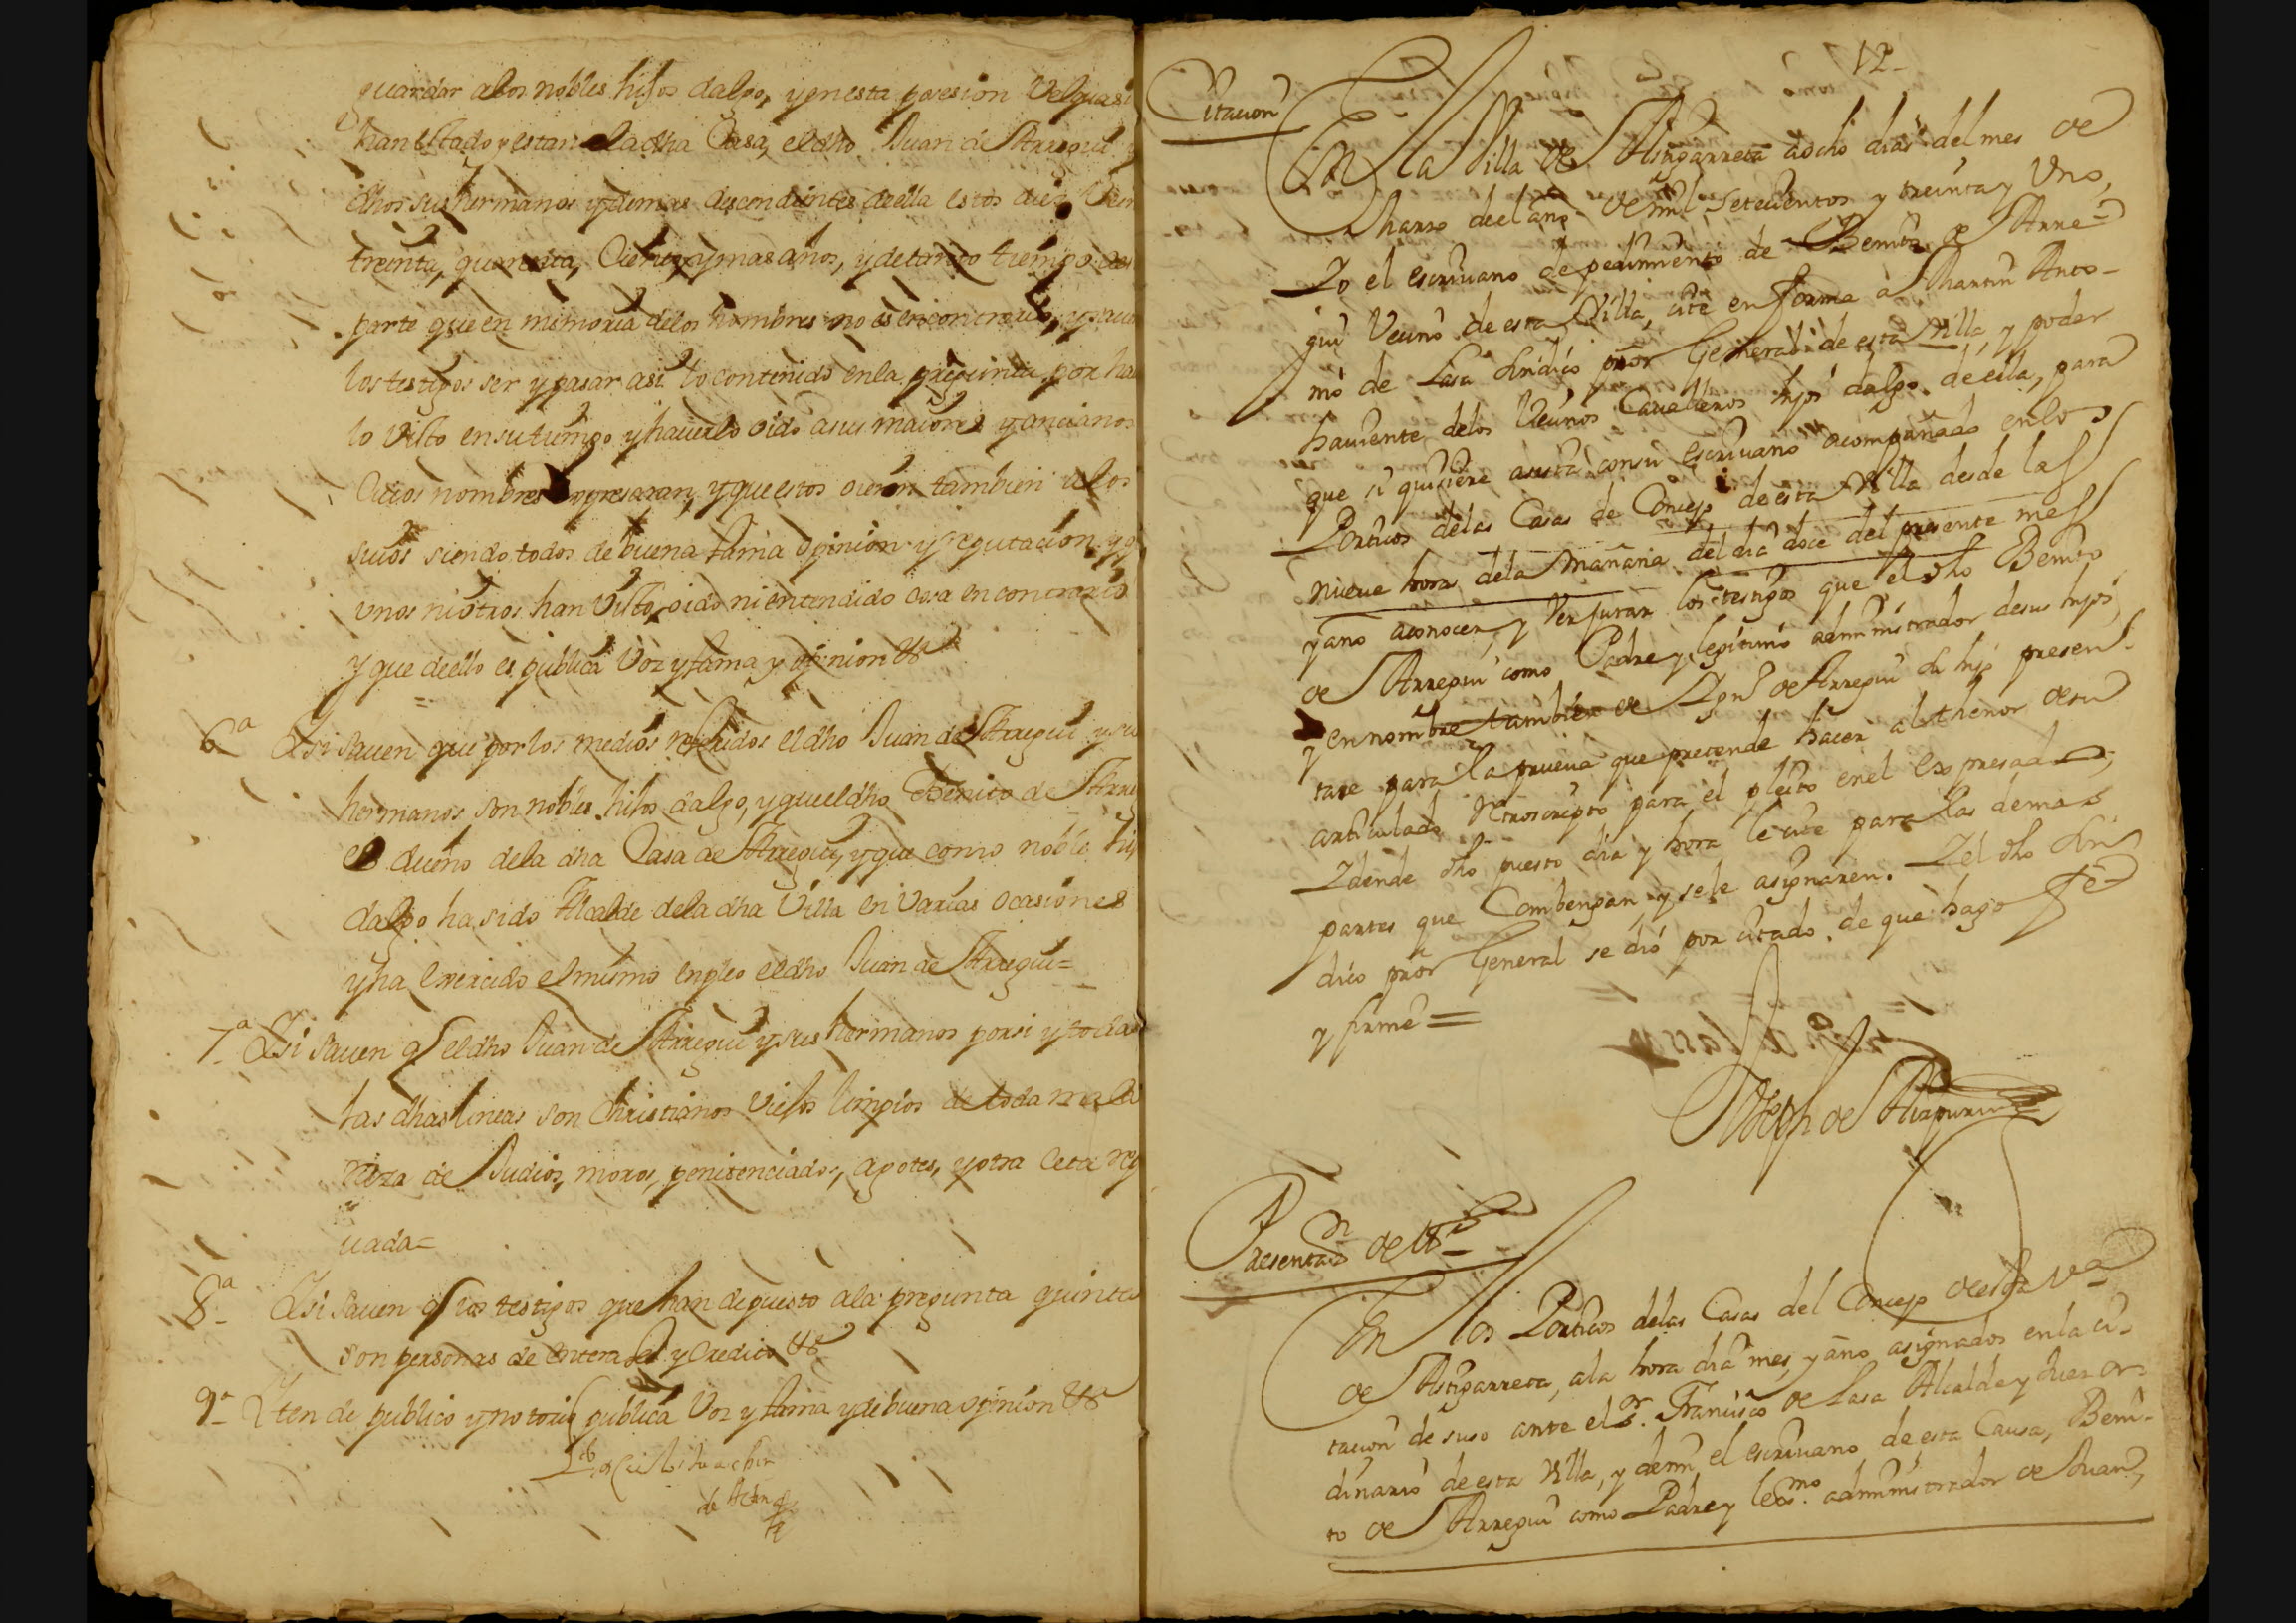 guardar alos nobles hijos dalgo, y en esta posesion Velquasi
han estado y estan la dha Casa, el dho Juan de Arregui y
dhos sus hermanos y demas descendientes de ella estos diez Vein
treinta, quarenta, y mas años, y de tanto tiempo aes
parte que en memoria delos hombres no es en contrario, y sauen
los testigos ser y pasar asi lo contenido en la pregunta por ha
lo visto en su tiempo y hauerlo oido a sus maiores y ancianos
Cuios nombres expresaran, y que estos oieron tambien alos
suios siendo todos de buena fama opinion y reputacion, y q
unos ni otros han Visto, oido ni entendido cosa en contrario
y que de ello es publica Voz y fama y opinion &a
6a Ysi sauen que por los medios referidos el dho Juan de Arregui y su
hermanos son nobles hijos dalgo, y que el dho Benito de Arre
es dueño dela dha Casa de Arregui, y que como noble hij
dalgo ha sido Alcalde dela dha Villa en Varias ocasiones
y ha exercido el mismo enpleo el dho Juan de Arregui=
7a Ysi sauen q el dho Juan de Arregui y sus hermanos por si y todas
las dhas lineas son Christianos Viejos limpios de toda mala
raza de Judios, moros, penitenciados, agotes, y otra ceta rep
uada=
8a Ysi sauen q los testigos que han depuesto ala pregunta quinta
son personas de entera fee y credito &a
9a Yten de publico y notorio publica Voz y fama y de buena opinion &a
12-
Citacion
En la Villa de Astigarreta a ocho dias del mes de
Marzo de el año de mil setecientos y treinta y Uno,
Yo el escriuano de pedimiento de Benito de Arre-
gui Vecino de esta Villa, cite en forma à Martin Anto-
nio de Lasa Sindico pror General de esta Villa, y poder
hauiente delos Vecinos Caualleros hijos dalgo de ella, para
que si quisiere asista con su escriuano acompañado en los
Porticos delas Casas de Concejo de esta Villa desde las
nueue hora dela mañana del dia doce del presente mes
y año aconocer, y Ver jurar los testigos que el dho Benito
de Arregui como Padre y legitimo administrador de sus hijos,
y en nombre tambien de Ygno de Arregui su hijo presen-
tare para la prueua que pretende hacer al thenor de su
articulado retroscripto para el pleito en el expresado,
Y dende dho puesto dia y hora le cite para las demas
partes que Combengan y se le asignaren. Y el dho Sin-
dico pror General se dió por citado, de que hago fe
y firme =
Joseph de Aizpurua
Presentaon de tos
En los Porticos delas Casas del Concejo de esta Va
de Astigarreta, ala hora dia mes, y año asignados en la ci-
tacion de suso ante el sor. Francisco de Lasa Alcalde y Juez or-
dinario de esta Villa, y de mi el escriuano de esta Causa, Beni-
to de Arregui como Padre y legmo. administrador de Juan,